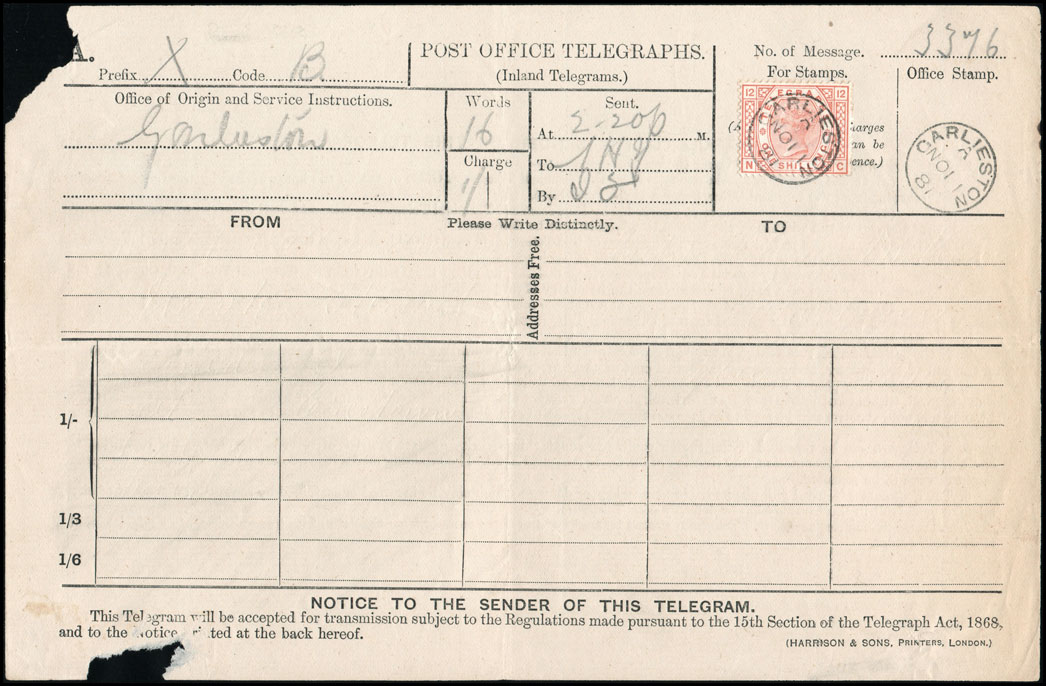 A.
Prefix X Code B
POST OFFICE TELEGRAPHS.
(Inland Telegrams.)
No. of Message. 3376
For Stamps.
Office Stamp.
Office of Origin and Service Instructions.
Garlieston
Words
16
Charge
1/
Sent.
At 2-20 p M.
To
By
12 12
SHILL
N C
GARLIESTON
NO 11
81
arges
an be
ence.)
GARLIESTON
NO 11
81
FROM
Please Write Distinctly.
TO
Addresses Free.
1/-
1/3
1/6
NOTICE TO THE SENDER OF THIS TELEGRAM.
This Telegram will be accepted for transmission subject to the Regulations made pursuant to the 15th Section of the Telegraph Act, 1868,
and to the Notice at the back hereof.
(HARRISON & SONS, PRINTERS, LONDON.)